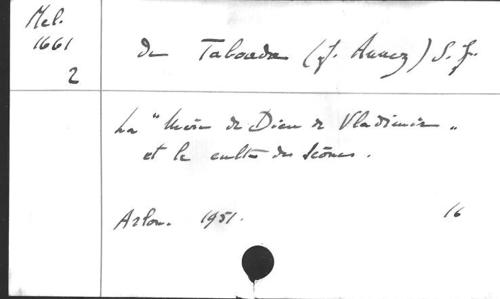 Mel.
1661
2
de Taboada (J. Annez) S. J.
La "Mère de Dieu de Vladimir"
et le culte des Icônes.
Arlon. 1951.
16